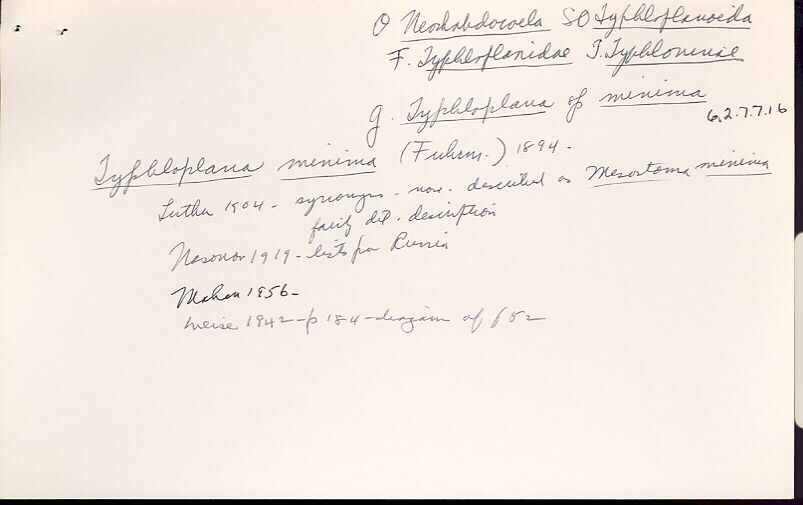 O Neorhabdocoela SO Typhloplanoida
F. Typhloplanidae T. Typhloninae
g. Typhloplana sp minima
6.2.7.7.16
Typhloplana minima (Fuhrm.) 1894.
Luther 1904 - synonyms - nov. described as Mesostoma minima
fairly det. description
Nasonov 1919 - lists for Russia
1956 -
Weise 1942 - p 184 - diagram of